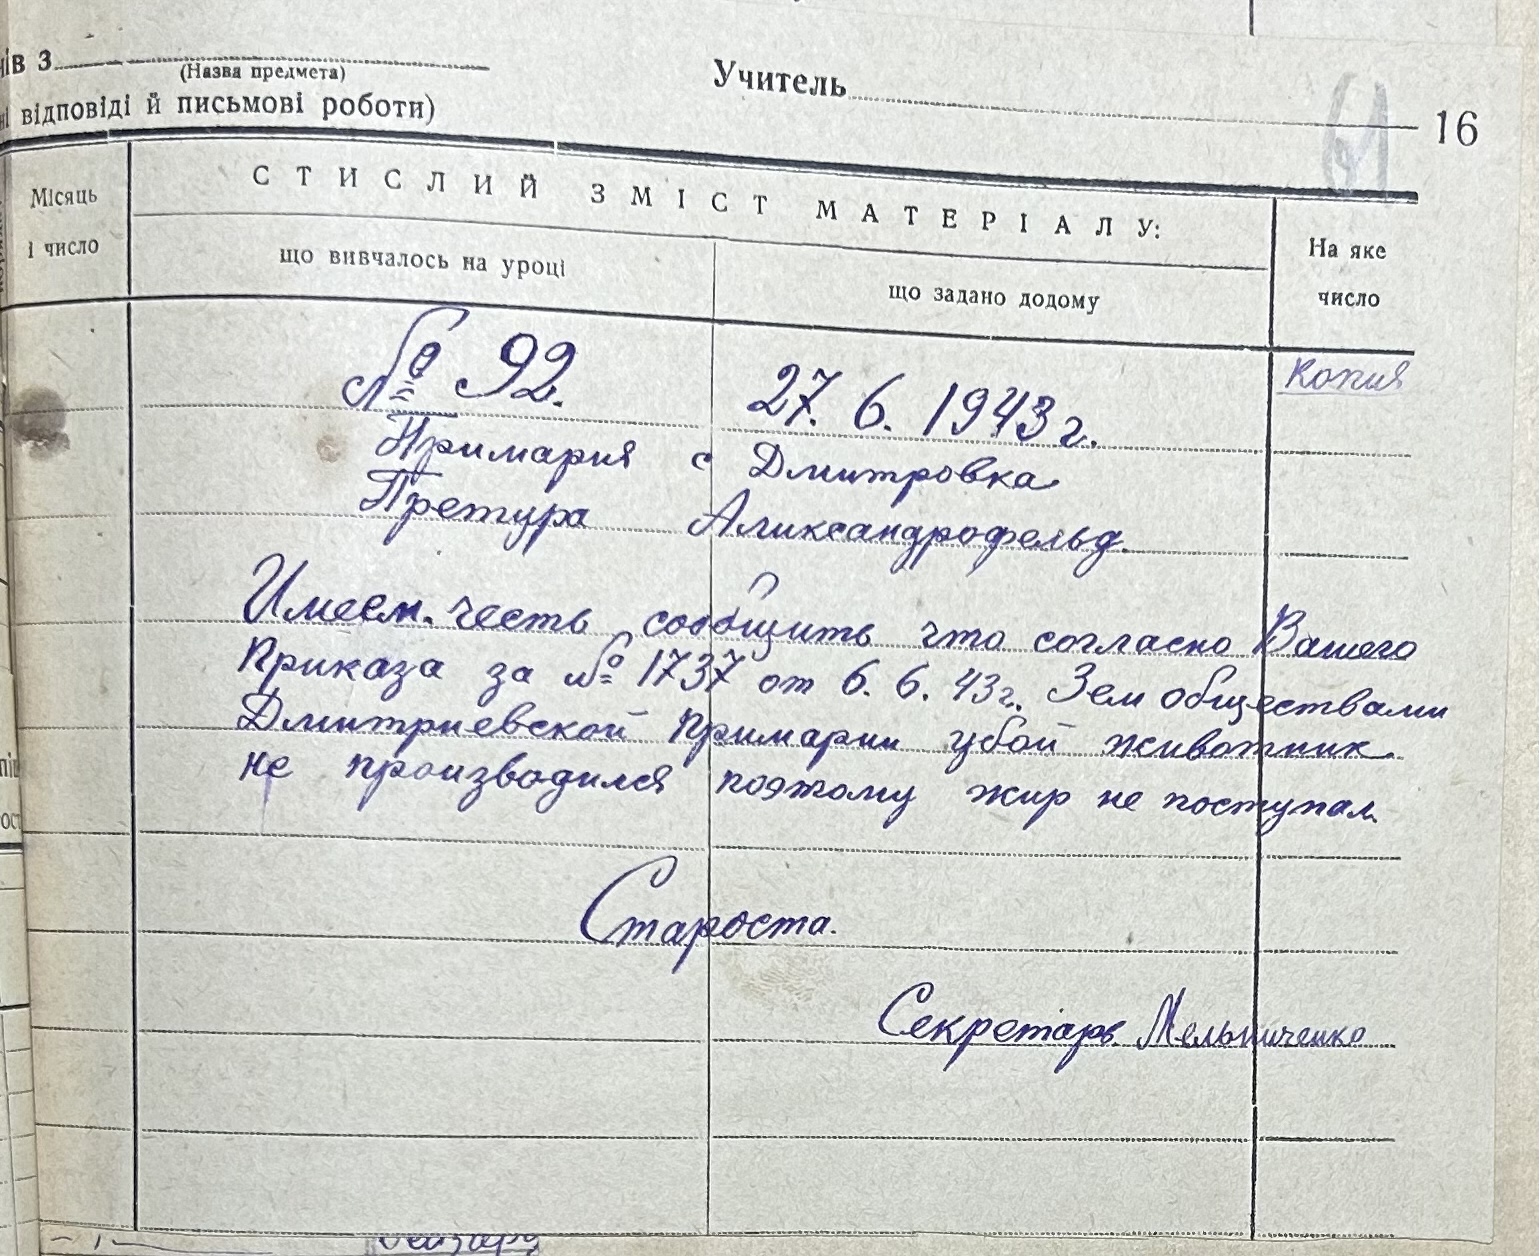 ів з
(Назва предмета)
Учитель
16
відповіді й письмові роботи)
Місяць
і число
СТИСЛИЙ ЗМІСТ МАТЕРІАЛУ:
що вивчалось на уроці
що задано додому
На яке
число
Копия
№ 92. 27. 6. 1943 г.
Примария с Дмитровка
Претура Аликсандрофельд.
Имеем честь сообщить что согласно Вашего
Приказа за № 1737 от 6. 6. 43 г. Зем обществами
Дмитриевской Примарии убой животник
не производился поэтому жир не поступал.
Староста.
Секретарь Мельниченко